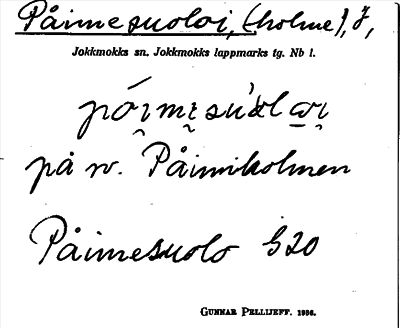 Påimesuoloi, (-holme), J,
Jokkmokks sn. Jokkmokks lappmarks tg. Nb l.
på sv. Påimiholmen
Påimesuolo S20
GUNNAR PELLIJEFF. 1956.